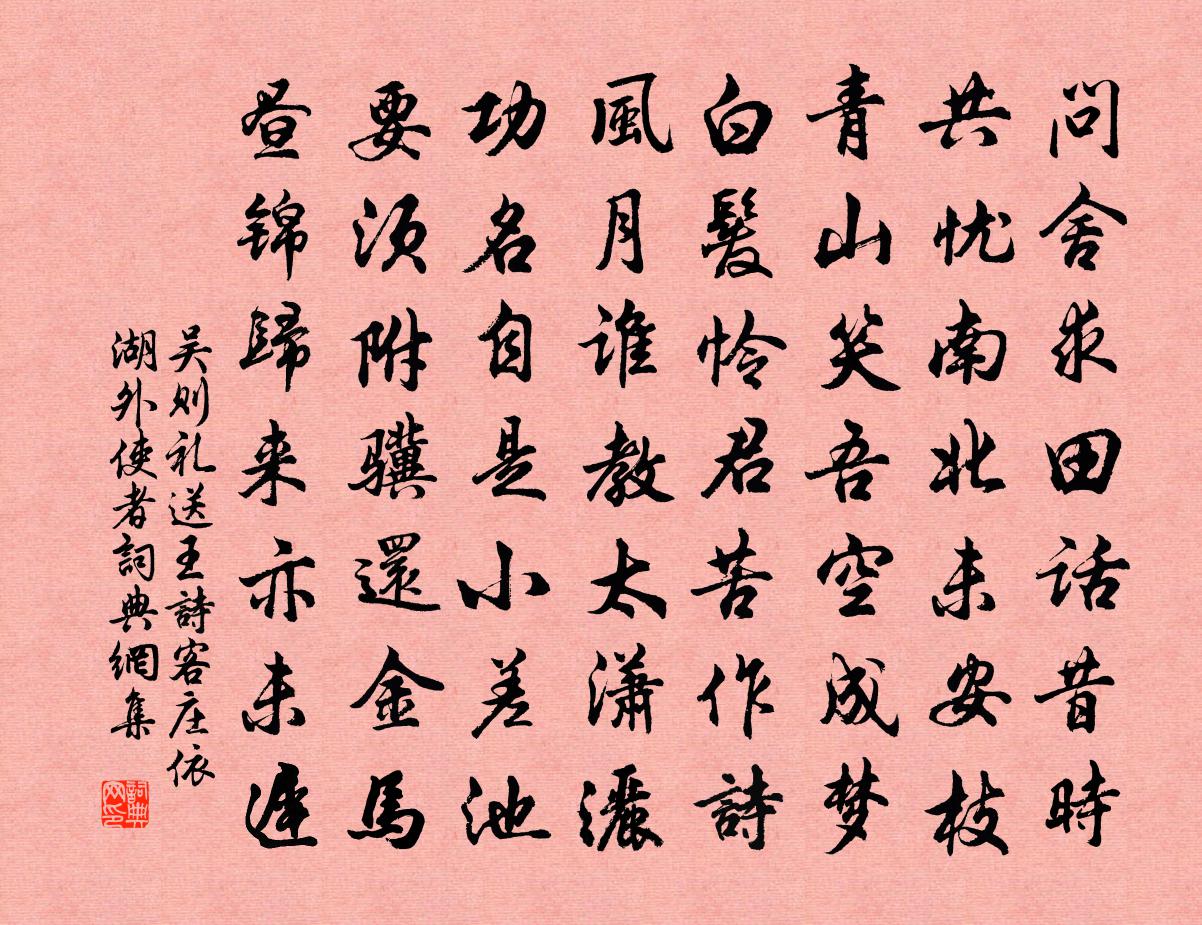 问舍求田话昔時
共忧南北未安枝
青山笑吾空成梦
白髮怜君苦作詩
風月谁教太潇灑
功名自是小差池
要须附骥還金馬
昼锦歸来亦未遲
吴则礼送王詩客庄依
湖外使者詞典網集
詞典网印